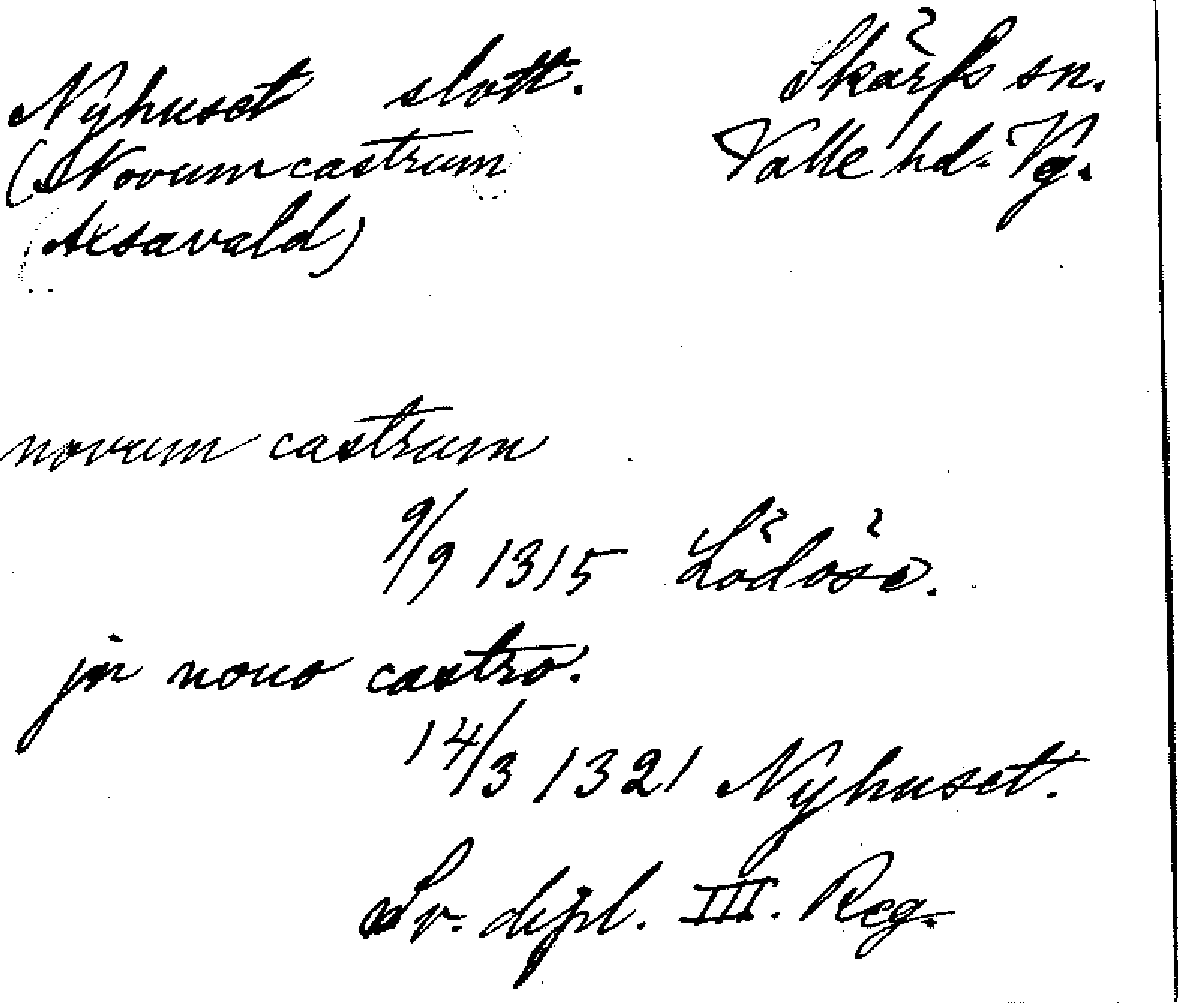 Nyhuset slott.
(Novum castrum
(Axsavald)
Skärfs sn.
Valle hd. Vg.
novum castrum
9/9 1315 Lödöse.
jn nouo castro.
14/3 1321 Nyhuset.
Sv. dipl. III. Reg.